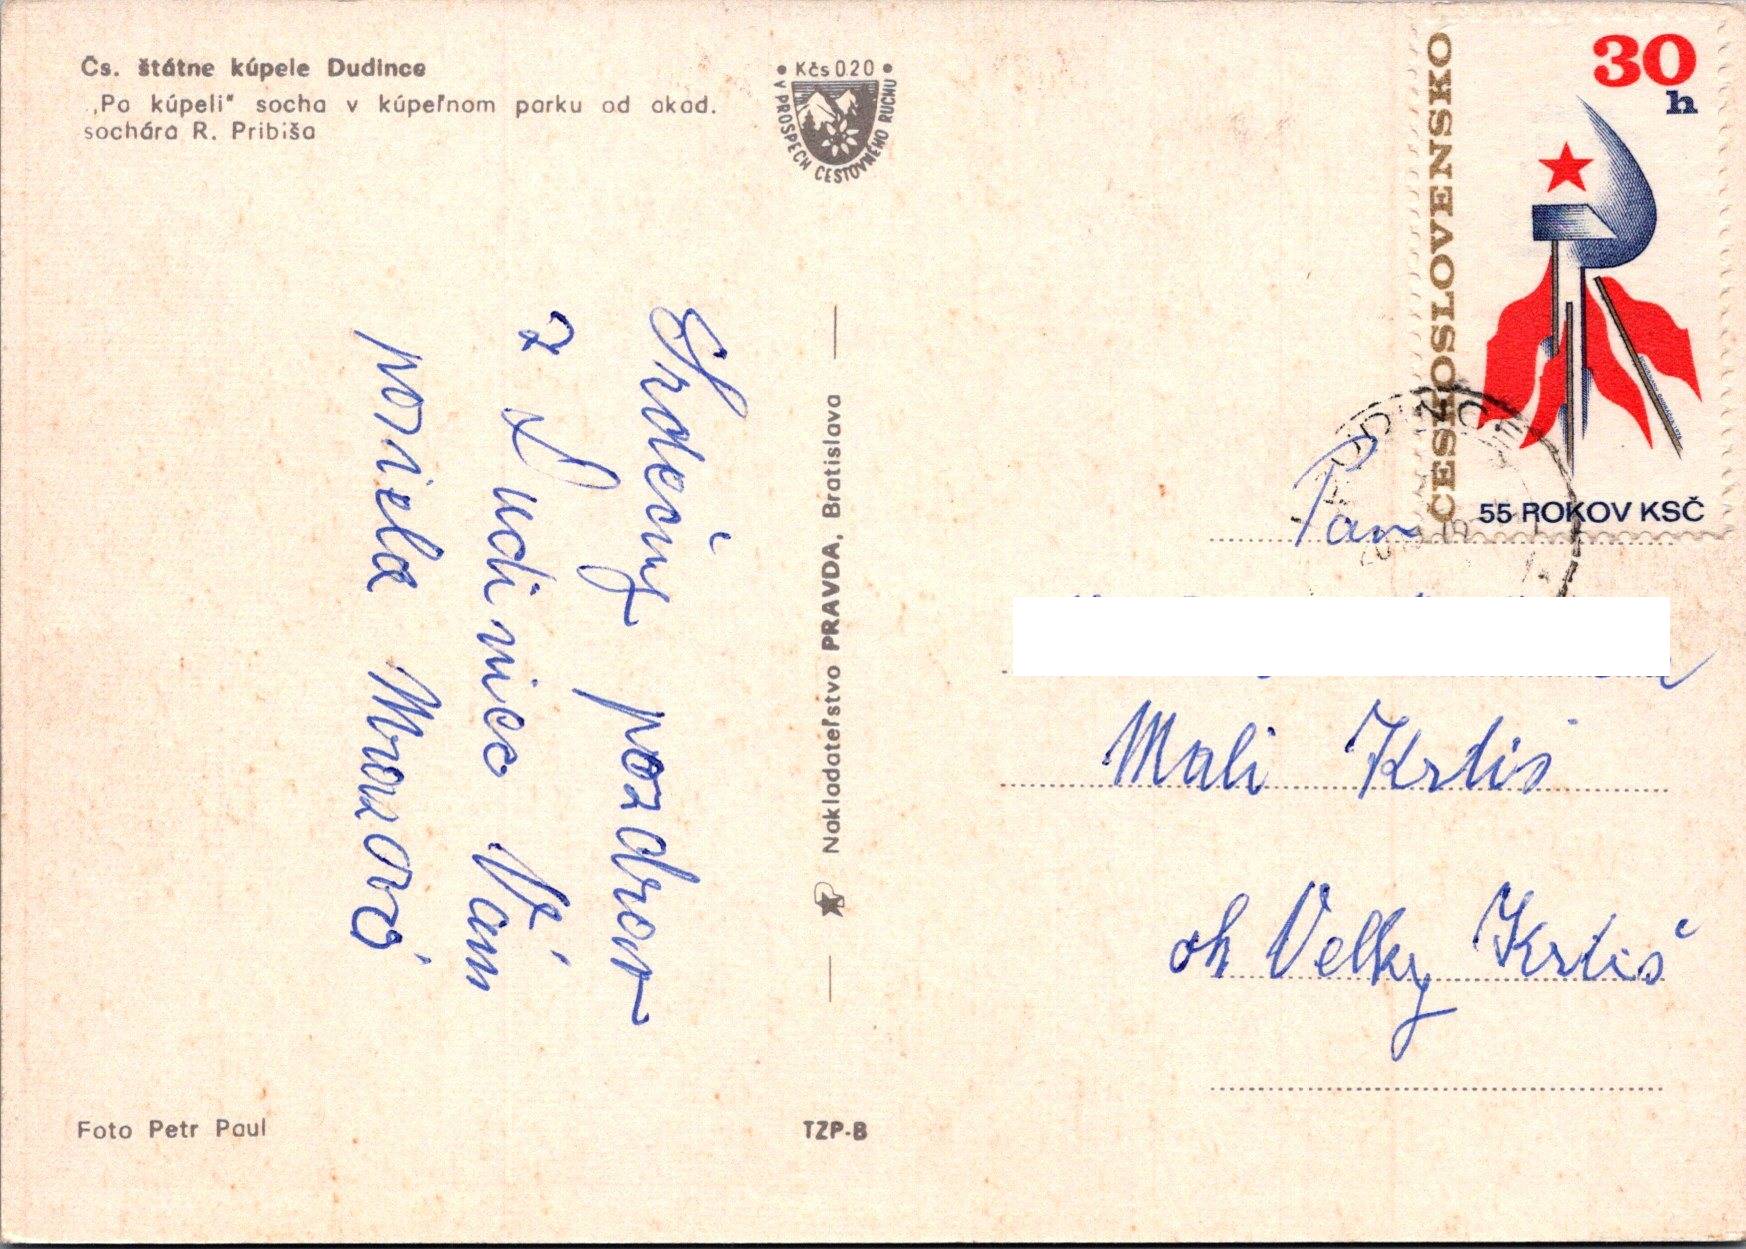 Čs. štátne kúpele Dudince
„Po kúpeli" socha v kúpeľnom parku od akad.
sochára R. Pribiša
Kčs 0.20
V PROSPECH CESTOVNÉHO RUCHU
ČESKOSLOVENSKO
30
h
55 ROKOV KSČ
DUDINCE
Srdečný pozdrav
z Dudiniec Vám
posiela Mrazová
Nakladateľstvo PRAVDA, Bratislava
Pan
Mali Krtiš
ok Velky Krtiš
Foto Petr Paul
TZP-B